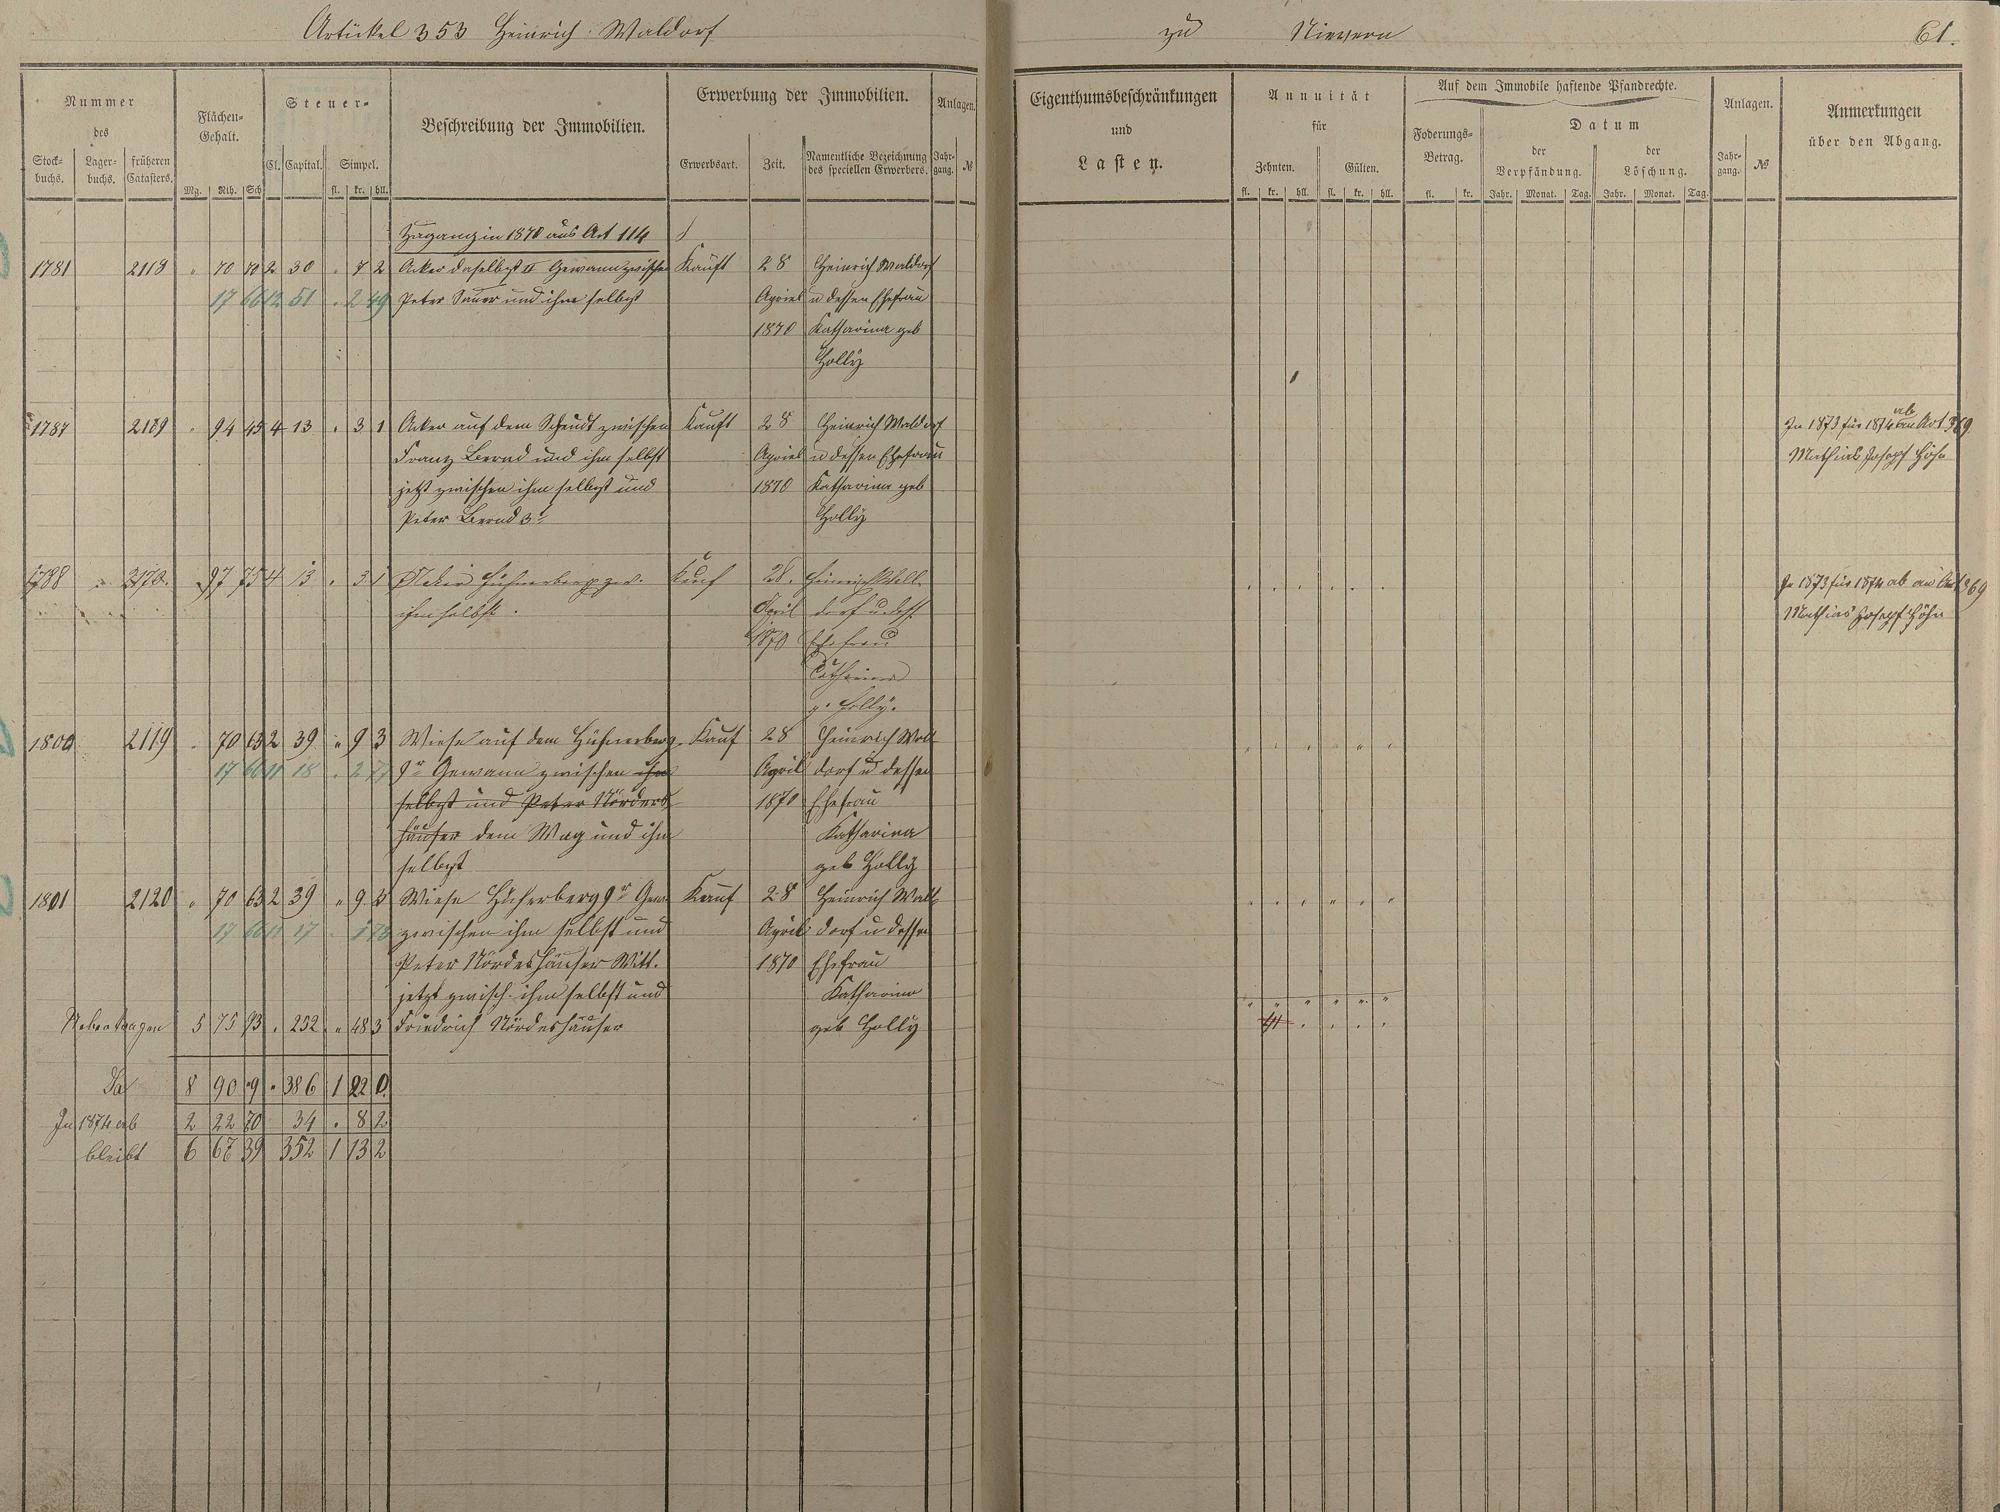 Artickel 353 Heinrich Waldorf zu Nievern 61.
Nummer
des
Stock-
buchs.
Lager-
buchs.
früheren
Catasters.
Flächen-
Gehalt.
Mg. Rth. Sch
Steuer-
Cl. Capital. Simpel.
fl. kr. hll.
Beschreibung der Immobilien.
Erwerbung der Immobilien.
Erwerbsart. Zeit.
Namentliche Bezeichnung
des speciellen Erwerbers.
Anlagen.
Jahr-
gang.
№
Eigenthumsbeschränkungen
und
Lasten.
Annuität
für
Zehnten. Gülten.
fl. kr. hll. fl. kr. hll.
Auf dem Immobile haftende Pfandrechte.
Foderungs-
Betrag.
fl. kr.
Datum
der
Verpfändung.
Jahr. Monat. Tag.
der
Löschung.
Jahr. Monat. Tag.
Anlagen.
Jahr-
gang.
№
Anmerkungen
über den Abgang.
Zugang in 1870 aus Art 114
1781 2118 " 70 70 2 30 . 7 2 Acker daselbst II Gewann zwischen Kauft 28 Heinrich Waldorf
17 66 12 51 . 2 49 Peter Sauer und ihm selbst Apriel u dessen Ehefrau
1870 Katharina geb
Holly
1787 2169 " 94 45 4 13 . 3 1 Acker auf dem Scheudt zwischen Kauft 28 Heinrich Waldorf In 1873 für 1874 ab an Art 369
Franz Bernd und ihm selbst Apriel u dessen Ehefrau Mathias Josepf Höhn
jetzt zwischen ihm selbst und 1870 Katharina geb
Peter Bernd 3r Holly
1788 2170. 97 75 4 13 . 3 1 Acker Hühnerberg zw. Kauf 28. Heinrich Wall- In 1873 für 1874 ab an Art 369
ihm selbst. April dorf u. dess. Mathias Josepf Höhn
1870 Ehefrau
Catharina
g. Holly.
1800 2119 70 63 2 39 " 9 3 Wiese auf dem Hühnerberg Kauf 28 Heinrich Wall
17 66 11 18 . 2 77 9r Gewann zwischen ihm April dorf u dessen
selbst und Peter Nörders- 1870 Ehefrau
häuser dem Weg und ihm Katharina
selbst geb Holly
1801 2120 " 70 63 2 39 " 9 3 Wiese Hüherberg 9r Gew. Kauf 28 Heinrich Wall
17 66 11 17 zwischen ihm selbst und April dorf u dessen
Peter Nördeshäuser Witt. 1870 Ehefrau
jetzt zwisch. ihm selbst und Katharina
5 75 93 . 252 . 48 3 Friedrich Nördeshäuser geb Holly
8 90 9 . 386 1 22 0
In 1874 ab 2 22 70 34 . 8 2
bleibt 6 67 39 352 1 13 2